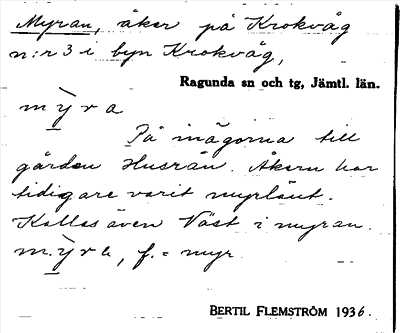 Myran, åker på Krokvåg
n:r 3 i byn Krokvåg,
Ragunda sn och tg, Jämtl. län.
mỳra
På inägorna till
gården Husran. Åkern har
tidigare varit myrlänt.
Kallas även Väst i myran.
mỳra, f. = myr
BERTIL FLEMSTRÖM 1936.